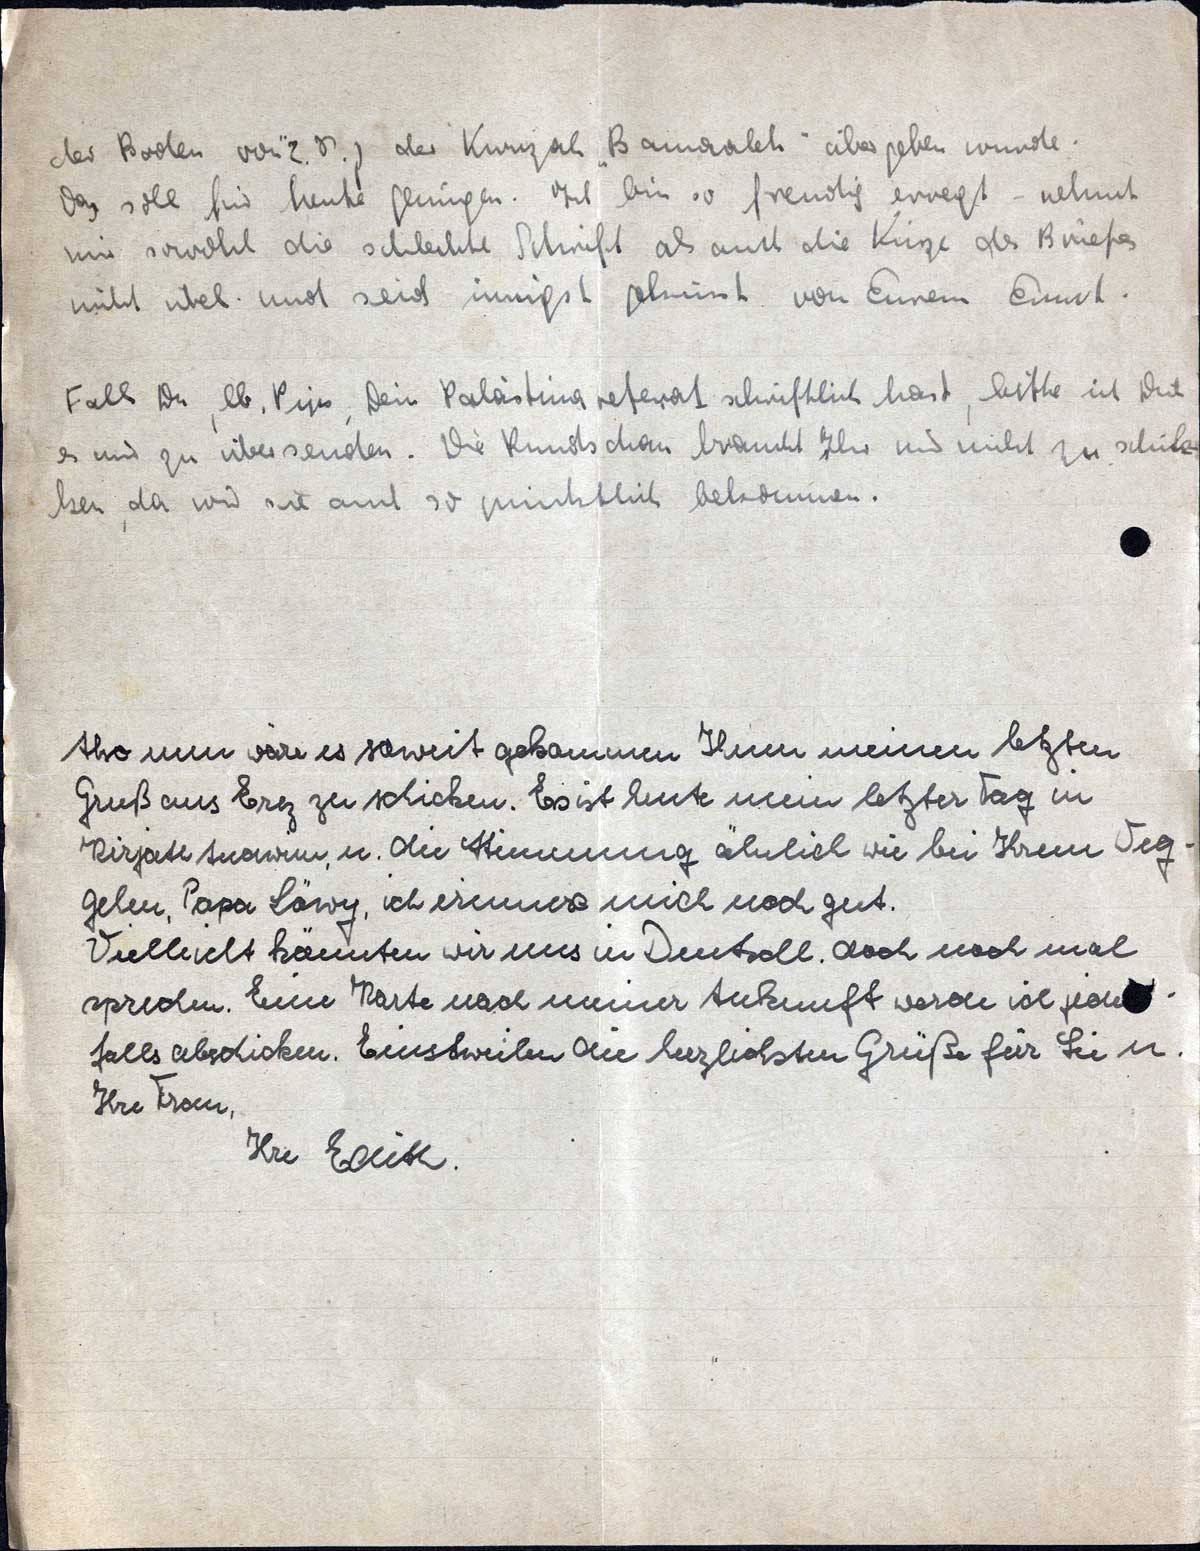 der Boden von der Kwuzah "Bamaaleh" übergeben wurde.
Das soll für heute genügen. Ich bin so freudig erregt - nehmt
mir sowohl die schlechte Schrift als auch die Kürze des Briefes
nicht übel und seid innigst geküsst von Eurem
Falls Du, lb. Dein Palästinareferat schriftlich hast, bitte ich Dich
es mir zu übersenden. Die Rundschau braucht Ihr mir nicht zu schik-
ken, da wir sie auch so pünktlich bekommen.
Also nun wäre es soweit gekommen Ihnen meinen letzten
Gruß aus Erez zu schicken. Es ist heute mein letzter Tag in
Kirjath Anawim, u. die Stimmung ähnlich wie bei Ihrem Weg-
gehen, Papa Löwy, ich erinnere mich noch gut.
Vielleicht könnten wir uns in Deutschl. doch noch mal
sprechen. Eine Karte nach meiner Ankunft werde ich
falls abschicken. Einstweilen die herzlichsten Grüße für Sie u.
Ihre Frau,
Ihre Edith.